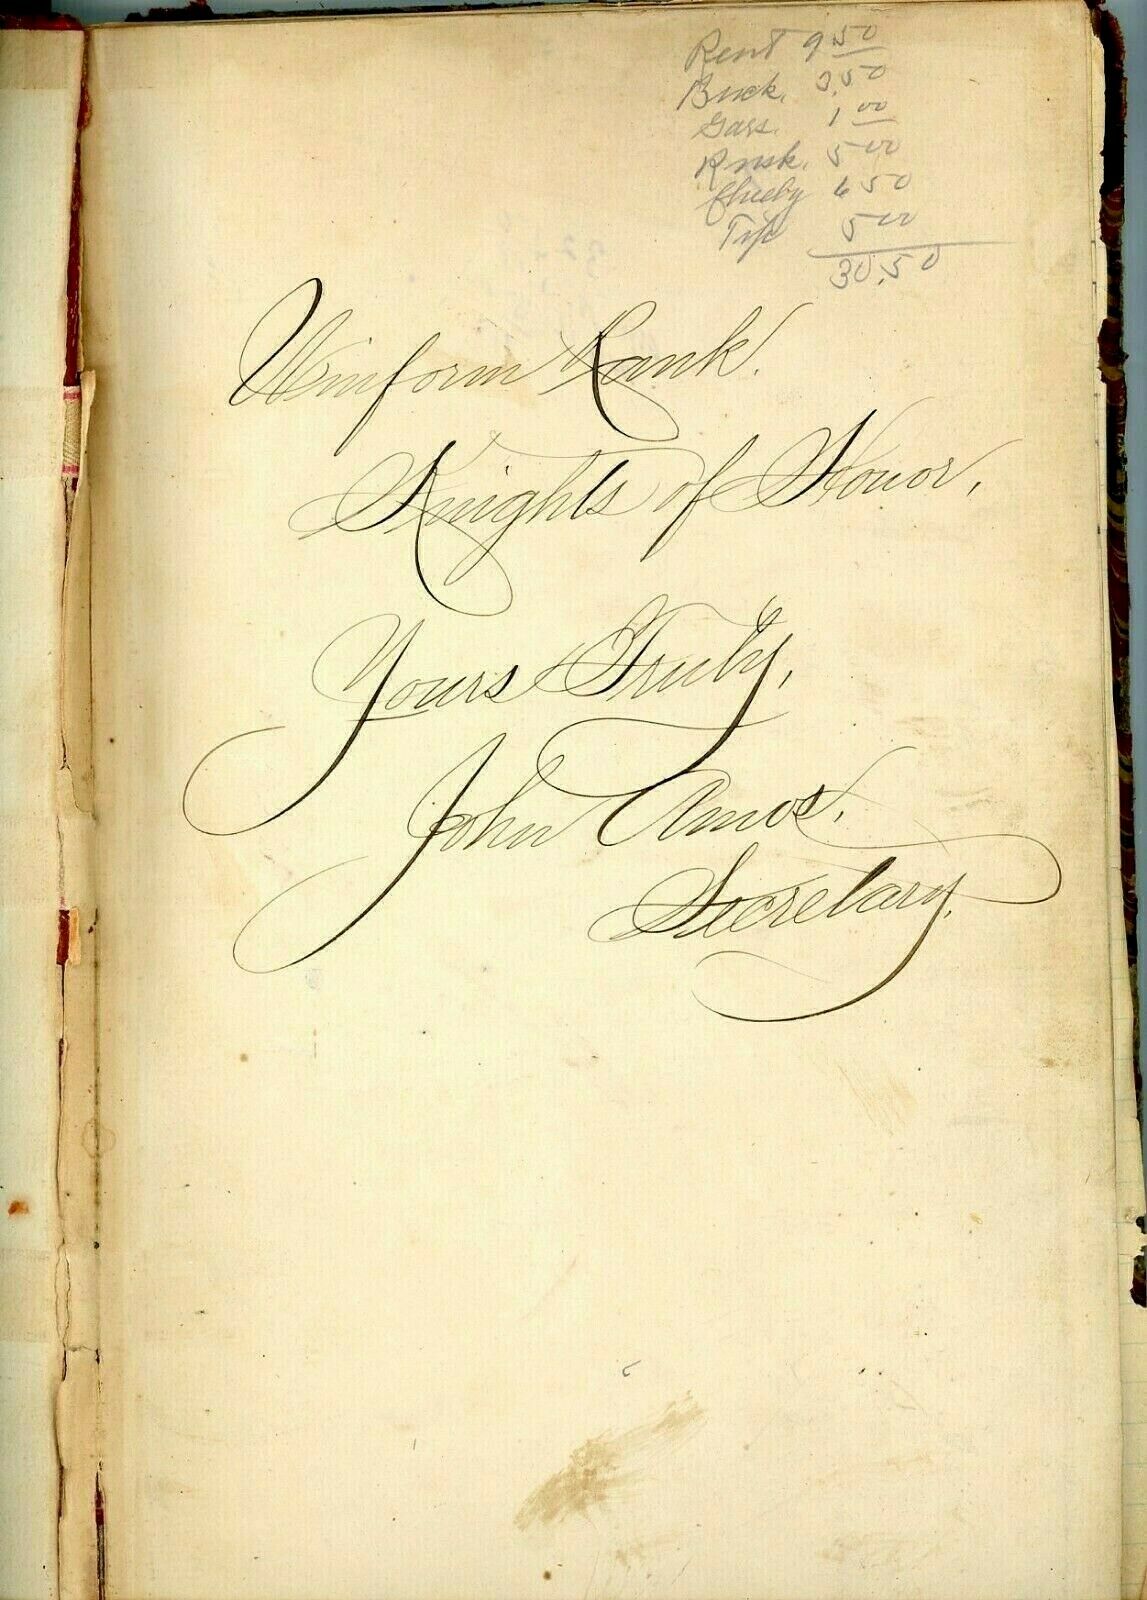 Rent 9.50
Buck. 3.50
Gars. 1.00
Rusk. 5.00
6 50
5 00
30.50
Uniform Rank.
Knights of Honor,
Yours Truly,
John Amos.
Secretary.